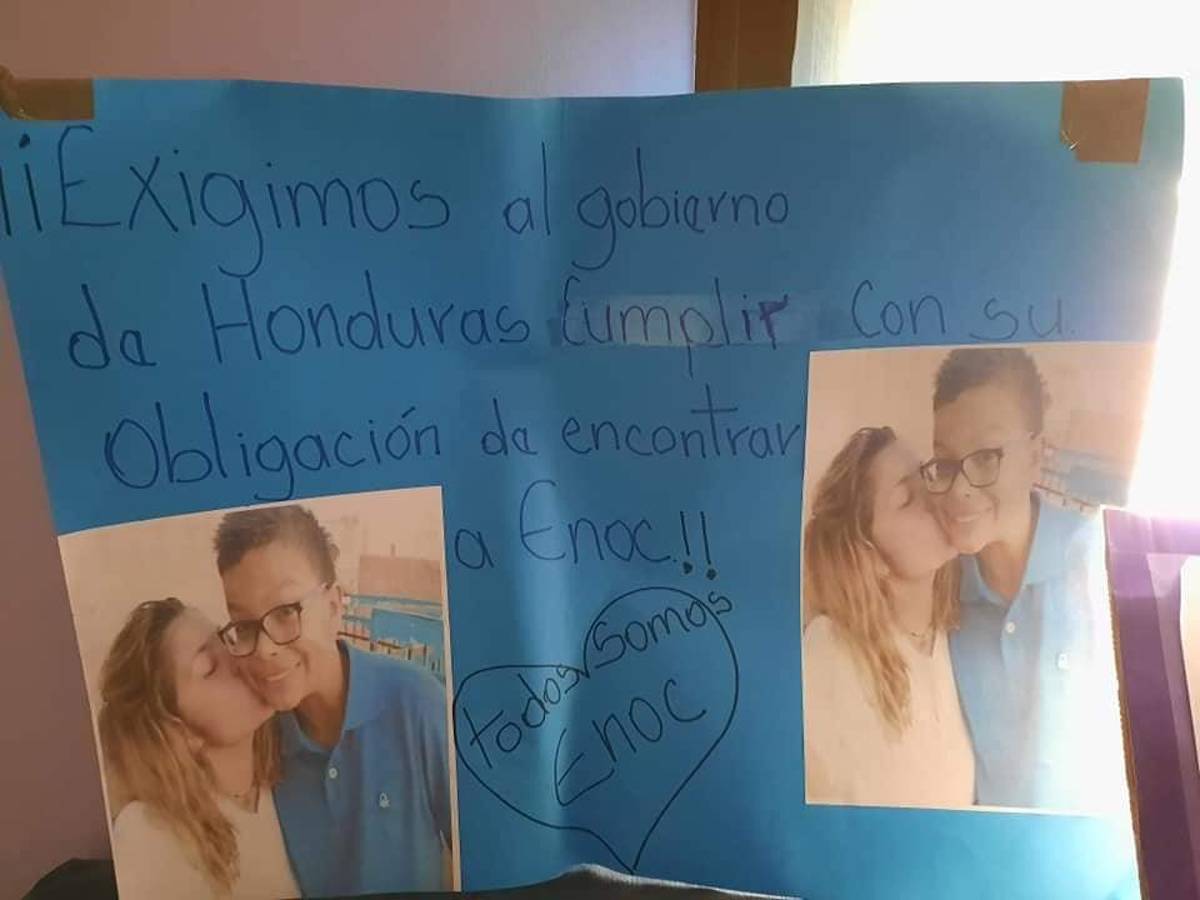 ¡¡Exigimos al gobierno
de Honduras Cumplir Con su
Obligación de encontrar
a Enoc!!
todos somos
ENOC